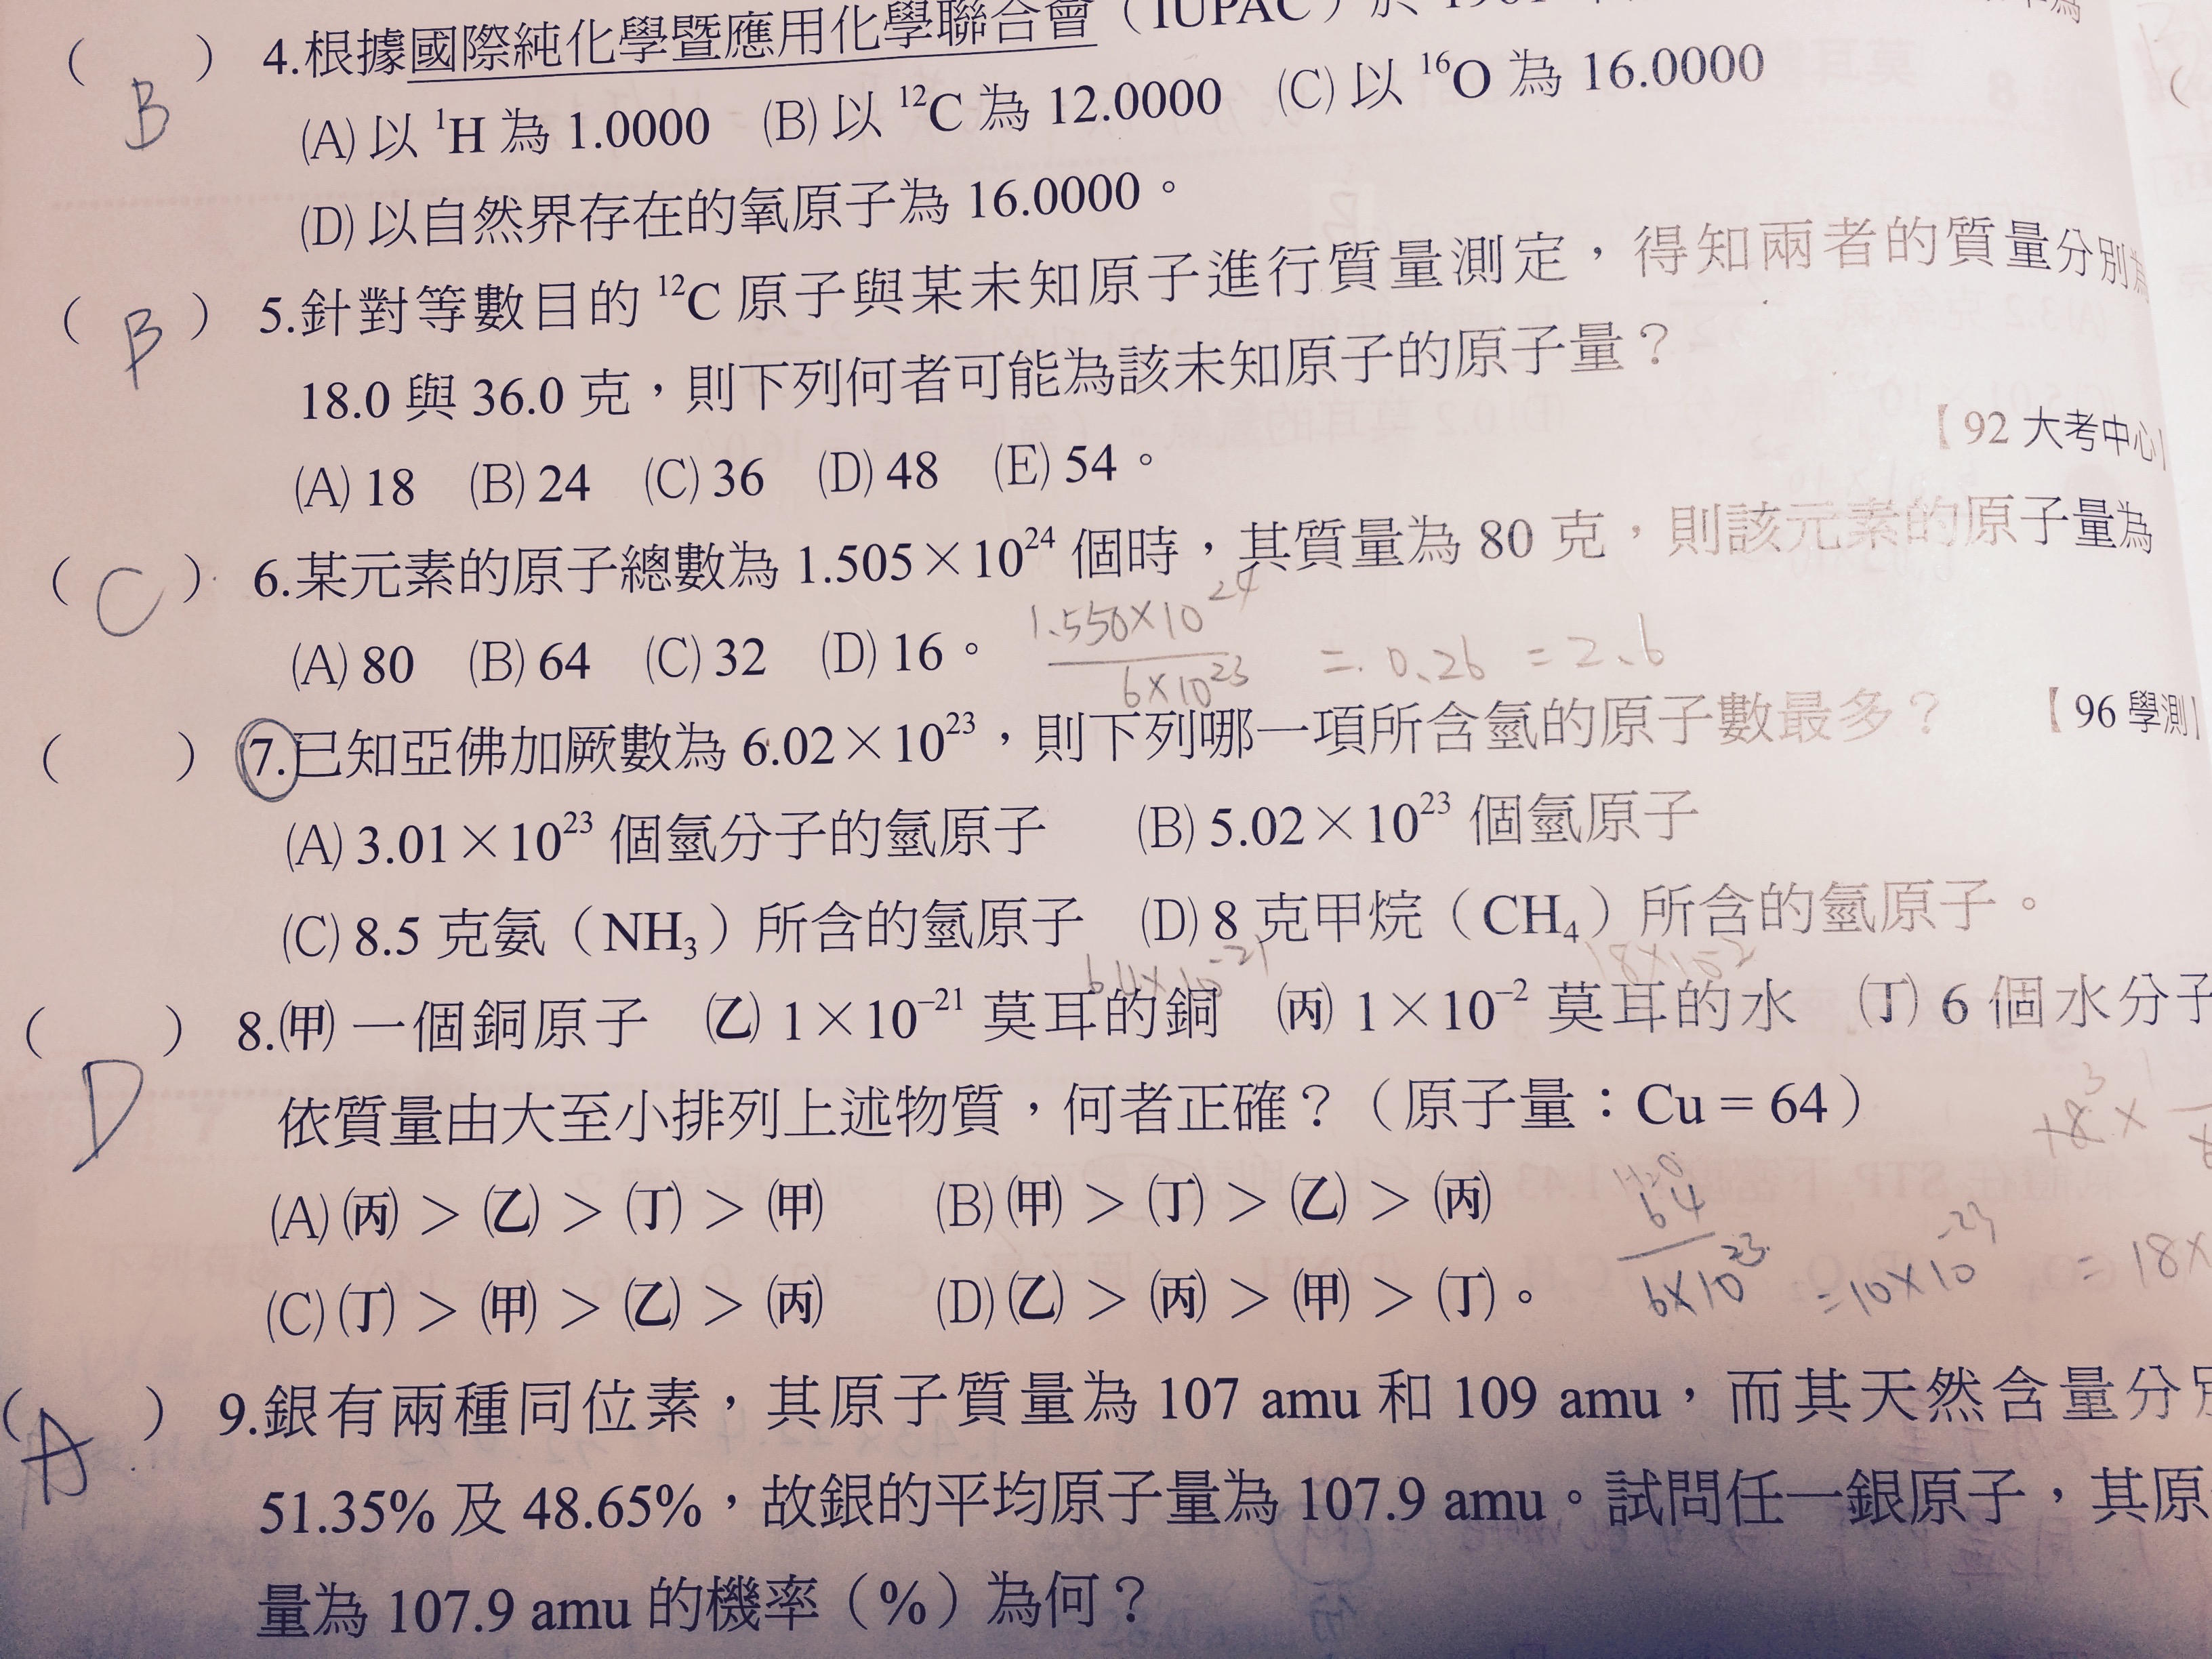 ( B ) 4.根據國際純化學暨應用化學聯合會（IUPAC）於
(A)以 ¹H 為 1.0000 (B)以 ¹²C 為 12.0000 (C)以 ¹⁶O 為 16.0000
(D)以自然界存在的氧原子為 16.0000。
( B ) 5.針對等數目的 ¹²C 原子與某未知原子進行質量測定，得知兩者的質量分別為
18.0 與 36.0 克，則下列何者可能為該未知原子的原子量？
【92 大考中心】
(A)18 (B)24 (C)36 (D)48 (E)54。
( C ) 6.某元素的原子總數為 1.505×10²⁴ 個時，其質量為 80 克，則該元素的原子量為
(A)80 (B)64 (C)32 (D)16。
1.550×10²⁴ / 6×10²³ = 0.26 = 2.6
( ) 7.已知亞佛加厥數為 6.02×10²³，則下列哪一項所含氫的原子數最多？ 【96 學測】
(A)3.01×10²³ 個氫分子的氫原子 (B)5.02×10²³ 個氫原子
(C)8.5 克氨（NH₃）所含的氫原子 (D)8 克甲烷（CH₄）所含的氫原子。
64×10⁻²¹ 18×10⁻²
( D ) 8.(甲)一個銅原子 (乙)1×10⁻²¹ 莫耳的銅 (丙)1×10⁻² 莫耳的水 (丁)6 個水分子
依質量由大至小排列上述物質，何者正確？（原子量：Cu = 64）
(A)(丙)＞(乙)＞(丁)＞(甲) (B)(甲)＞(丁)＞(乙)＞(丙)
(C)(丁)＞(甲)＞(乙)＞(丙) (D)(乙)＞(丙)＞(甲)＞(丁)。
64 / 6×10²³ = 10×10⁻²³ = 18×
( A ) 9.銀有兩種同位素，其原子質量為 107 amu 和 109 amu，而其天然含量分別
51.35% 及 48.65%，故銀的平均原子量為 107.9 amu。試問任一銀原子，其原
量為 107.9 amu 的機率（%）為何？